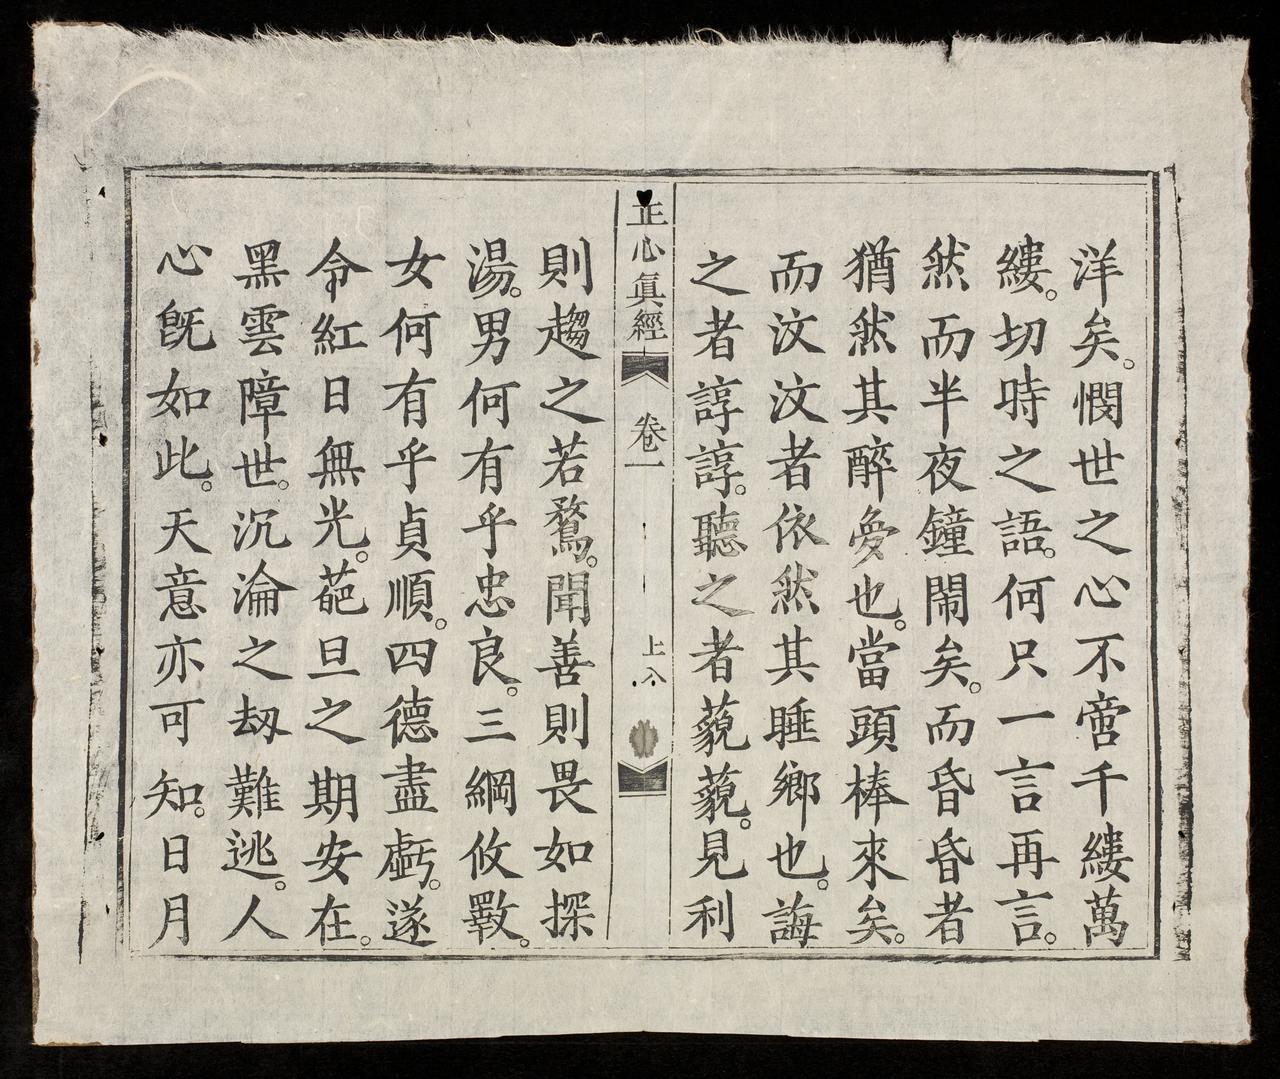 洋矣。憫世之心不啻千縷萬
縷。切時之語。何只一言再言。
然而半夜鐘鬧矣。而昏昏者
猶然其醉夢也。當頭棒來矣。
而汶汶者依然其睡鄉也。誨
之者諄諄。聽之者藐藐。見利
正心眞經 卷一 上
則趨之若鶩。聞善則畏如探
湯。男何有乎忠良。三綱攸斁。
女何有乎貞順。四德盡虧。遂
令紅日無光。葩旦之期安在。
黑雲障世。沉淪之刼難逃。人
心旣如此。天意亦可知。日月